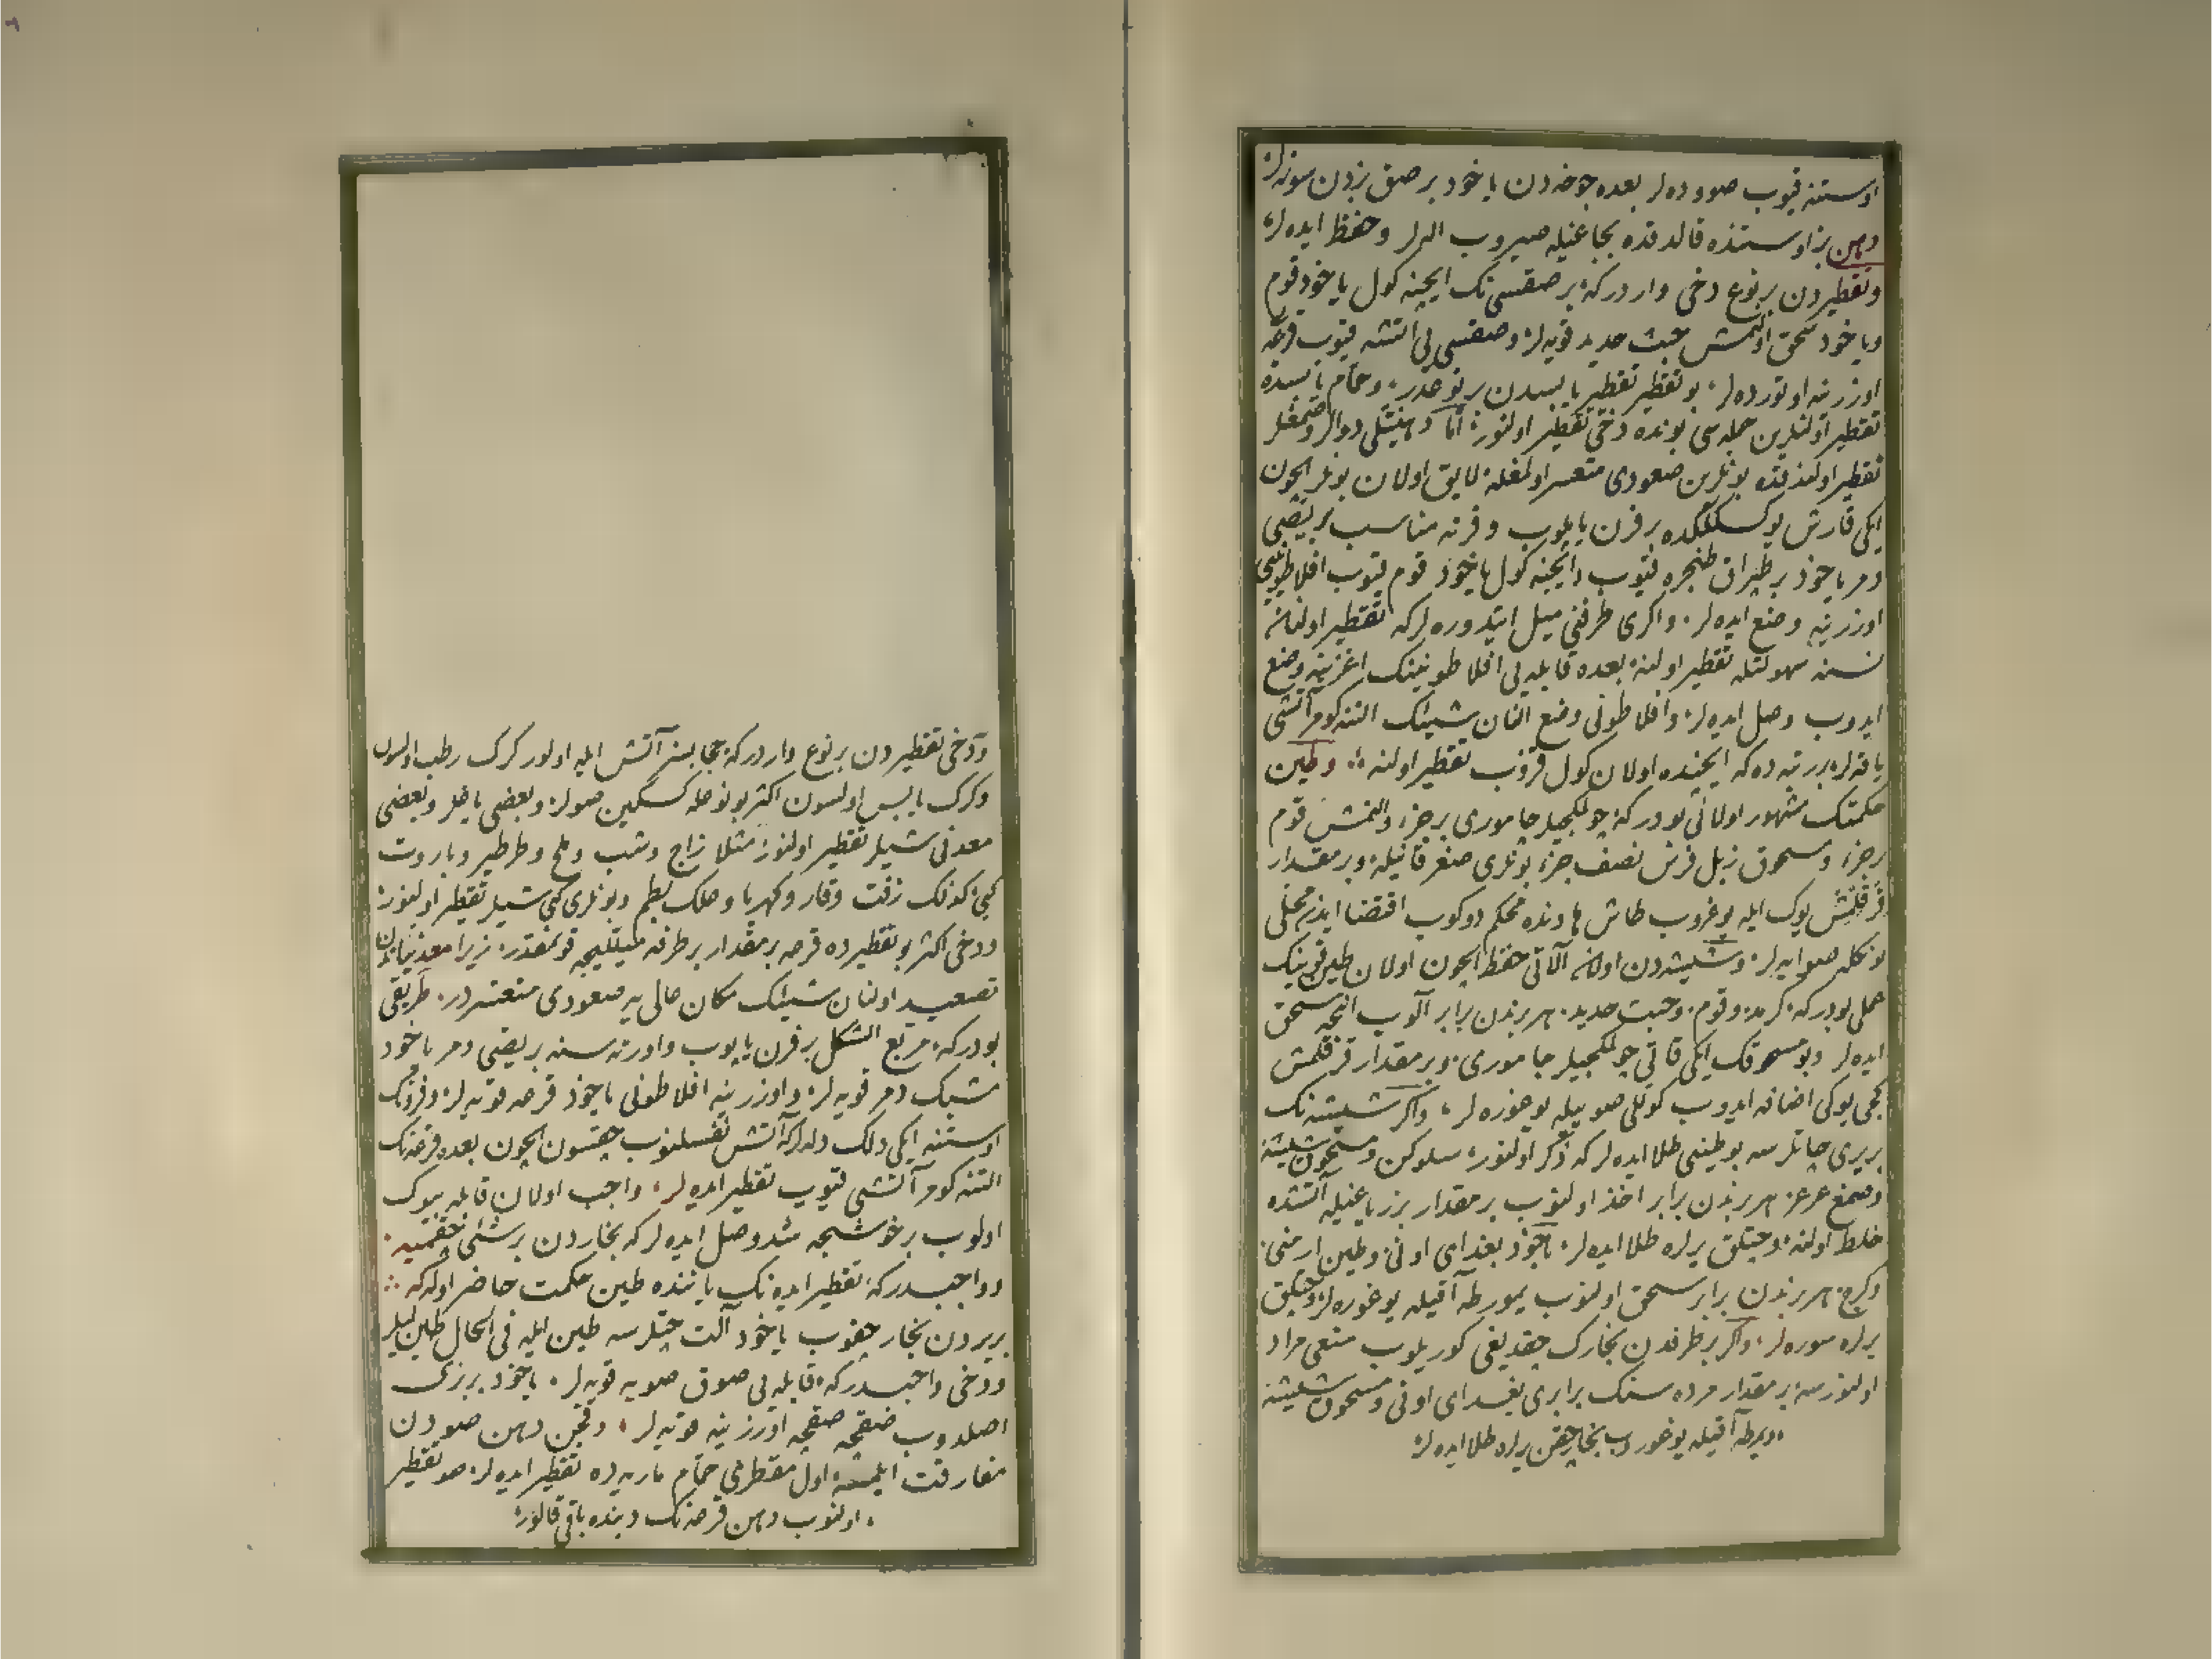 اوستنه قیوب صووده‌لر بعده چوخه‌دن یاخود بر صق بزدن سوزه‌لر
دهن بز اوستنده قالدقده بچاغیله صیروب الرلر و حفظ ایده‌لر
وتقطیردن بر نوع دخی واردرکه بر صقسی‌نک ایچنه کول یاخود قوم
ویاخود سحق اولنمش خبث حدید قویه‌لر وصقسی‌یی آتشه قیوب قرعه
اوزرینه اوتورده‌لر بو تقطیر تقطیر یابسدن بر نوعدر وحمام یابسده
تقطیر اولنلرین جمله‌سی بونده دخی تقطیر اولنور اما دهنیتلی دوالر وصمغلر
تقطیر اولندقده بونلرین صعودی متعسر اولمغله لایق اولان بونلر ایچون
ایکی قارش یوکسکلکده بر فرن یاپلوب و فرنه مناسب بر یصی
دمر یاخود بر طپراق طنجره قیوب وایچنه کول یاخود قوم قیوب افلاطونی‌یی
اوزرینه وضع ایده‌لر واکری طرفنی میل ایتدوره‌لرکه تقطیر اولنان
نسنه سهولتله تقطیر اولنه بعده قابله‌یی افلاطونینک اغزینه وضع
ایدوب وصل ایده‌لر وافلاطونی وضع النان شیئک التنه کومر آتشی
یاقه‌لر بر رتبه‌ده که ایچنده اولان کول قزوب تقطیر اولنه وطین
حکمتک مشهور اولانی بودرکه چولمکجیلر چاموری بر جزء والنمش قوم
بر جزء ومسحوق زبل فرس نصف جزء بونلری صغر قانیله وبر مقدار
قرقلمش یوک ایله یوغروب طاش هاونده محکم دوکوب اقتضا ایدن محلی
بونکله صوایه‌لر وشیشه‌دن اولان آلاتی حفظ ایچون اولان طین قوینک
عملی بودرکه کرمد وقوم وخبث حدید هر برندن برابر آلوب انجه سحق
ایده‌لر وبو مسحوقک ایکی قاتی چولمکجیلر چاموری وبر مقدار قرقلمش
کچی یوکی اضافه ایدوب کوللی صو ییله یوغوره‌لر واکر شیشه‌نک
بر یری چاتلرسه بو طینی طلا ایده‌لرکه ذکر اولنور سلوکن ومسحوق شیشه
وصمغ عرعر هر برندن برابر اخذ اولنوب بر مقدار بزر یاغیله آتشده
خلط اولنه وچتلق یرلره طلا ایده‌لر یاخود بغدای اونی وطین ارمنی
وکرج هر برندن برابر سحق اولنوب یمورطه آقیله یوغوره‌لر وچتلق
یرلره سوره‌لر واکر بر طرفدن بخارک چقدیغی کوریلوب منعی مراد
اولنورسه بر مقدار مرده‌سنک برابری بغدای اونی ومسحوق شیشه
ویمرطه آقیله یوغوروب بخار چقن یرلره طلا ایده‌لر
ودخی تقطیردن بر نوع واردرکه حجابسز آتش ایله اولور کرک رطب اولسون
وکرک یابس اولسون اکثر بو نوعله کسکین صولر وبعضی یاغلر وبعضی
معدنی شیلر تقطیر اولنور مثلا زاج وشب وملح وطرطیر وباروت
کبی کذلک زفت وقار وکهربا وعلک بطم وبونلری کبی شیلر تقطیر اولنور
ودخی اکثر بو تقطیرده قرعه بر مقدار بر طرفه میللیجه قونمقدر زیرا معدنیاتدن
تصعید اولنان شیئک مکان عالی‌یه صعودی متعسردر طریقی
بودرکه مربع الشکل بر فرن یاپوب واورته‌سنه بر یصی دمر یاخود
مشبک دمر قویه‌لر واوزرینه افلاطونی یاخود قرعه قویه‌لر وفرنک
اوستنه ایکی دلک دله‌لرکه آتش نفسلنوب چقسون ایچون بعده قرعه‌نک
التنه کومر آتشی قیوب تقطیر ایده‌لر واجب اولان قابله بیوک
اولوب بر خوشجه شد وصل ایده‌لرکه بخاردن بر شی چقمیه
وواجبدرکه تقطیر ایده‌نک یاننده طین حکمت حاضر اوله‌که
بر یردن بخار چقوب یاخود آلت چتلرسه طین ایله فی الحال طینلیلر
ودخی واجبدرکه قابله‌یی صوق صویه قویه‌لر یاخود بر بزی
اصلدوب صفحه صفحه اوزرینه قویه‌لر وقچن دهن صودن
مفارقت ایلمسه اول مقطری حمام ماریه‌ده تقطیر ایده‌لر صو تقطیر
اولنوب دهن قرعه‌نک دبنده باقی قالور